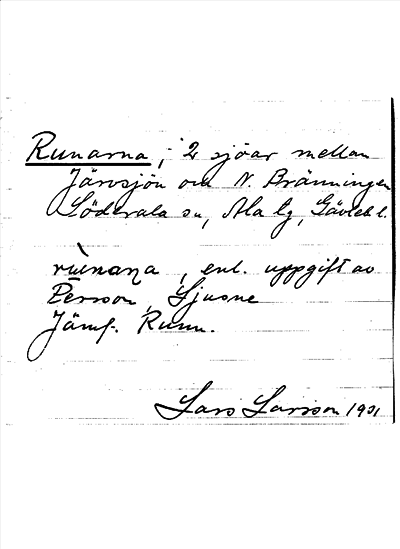 Runarna, - 2 sjöar mellan
Järvsjön och N. Bränningen
Söderala sn, Ala lg, Gävleb l.
rùnaɳa, enl. uppgift av
Persson, Ljusne
Jämf. Runn.
Lars Larsson 1901